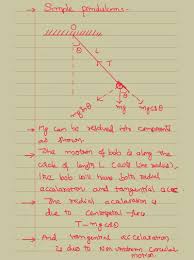 → Simple pendulum :-
O
θ
L
T
θ
mg sinθ
mg
mg cosθ
→ Mg can be resolved into components
as shown.
→ The motion of bob is along the
circle of length L (acts like radius).
The bob will have both radial
acceleration and tangential acc.
→ The radial acceleration is
due to Centripetal force
T - mg cosθ
→ And tangential acceleration
is due to Non uniform circular
motion.